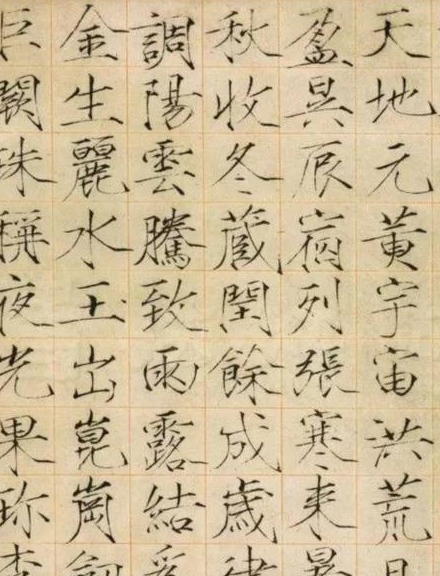 天地元黃宇宙洪荒
盈昃辰宿列張寒来
秋收冬藏閏餘成歲
調陽雲騰致雨露結
金生麗水玉出崑崗
巨闕珠稱夜光果珍